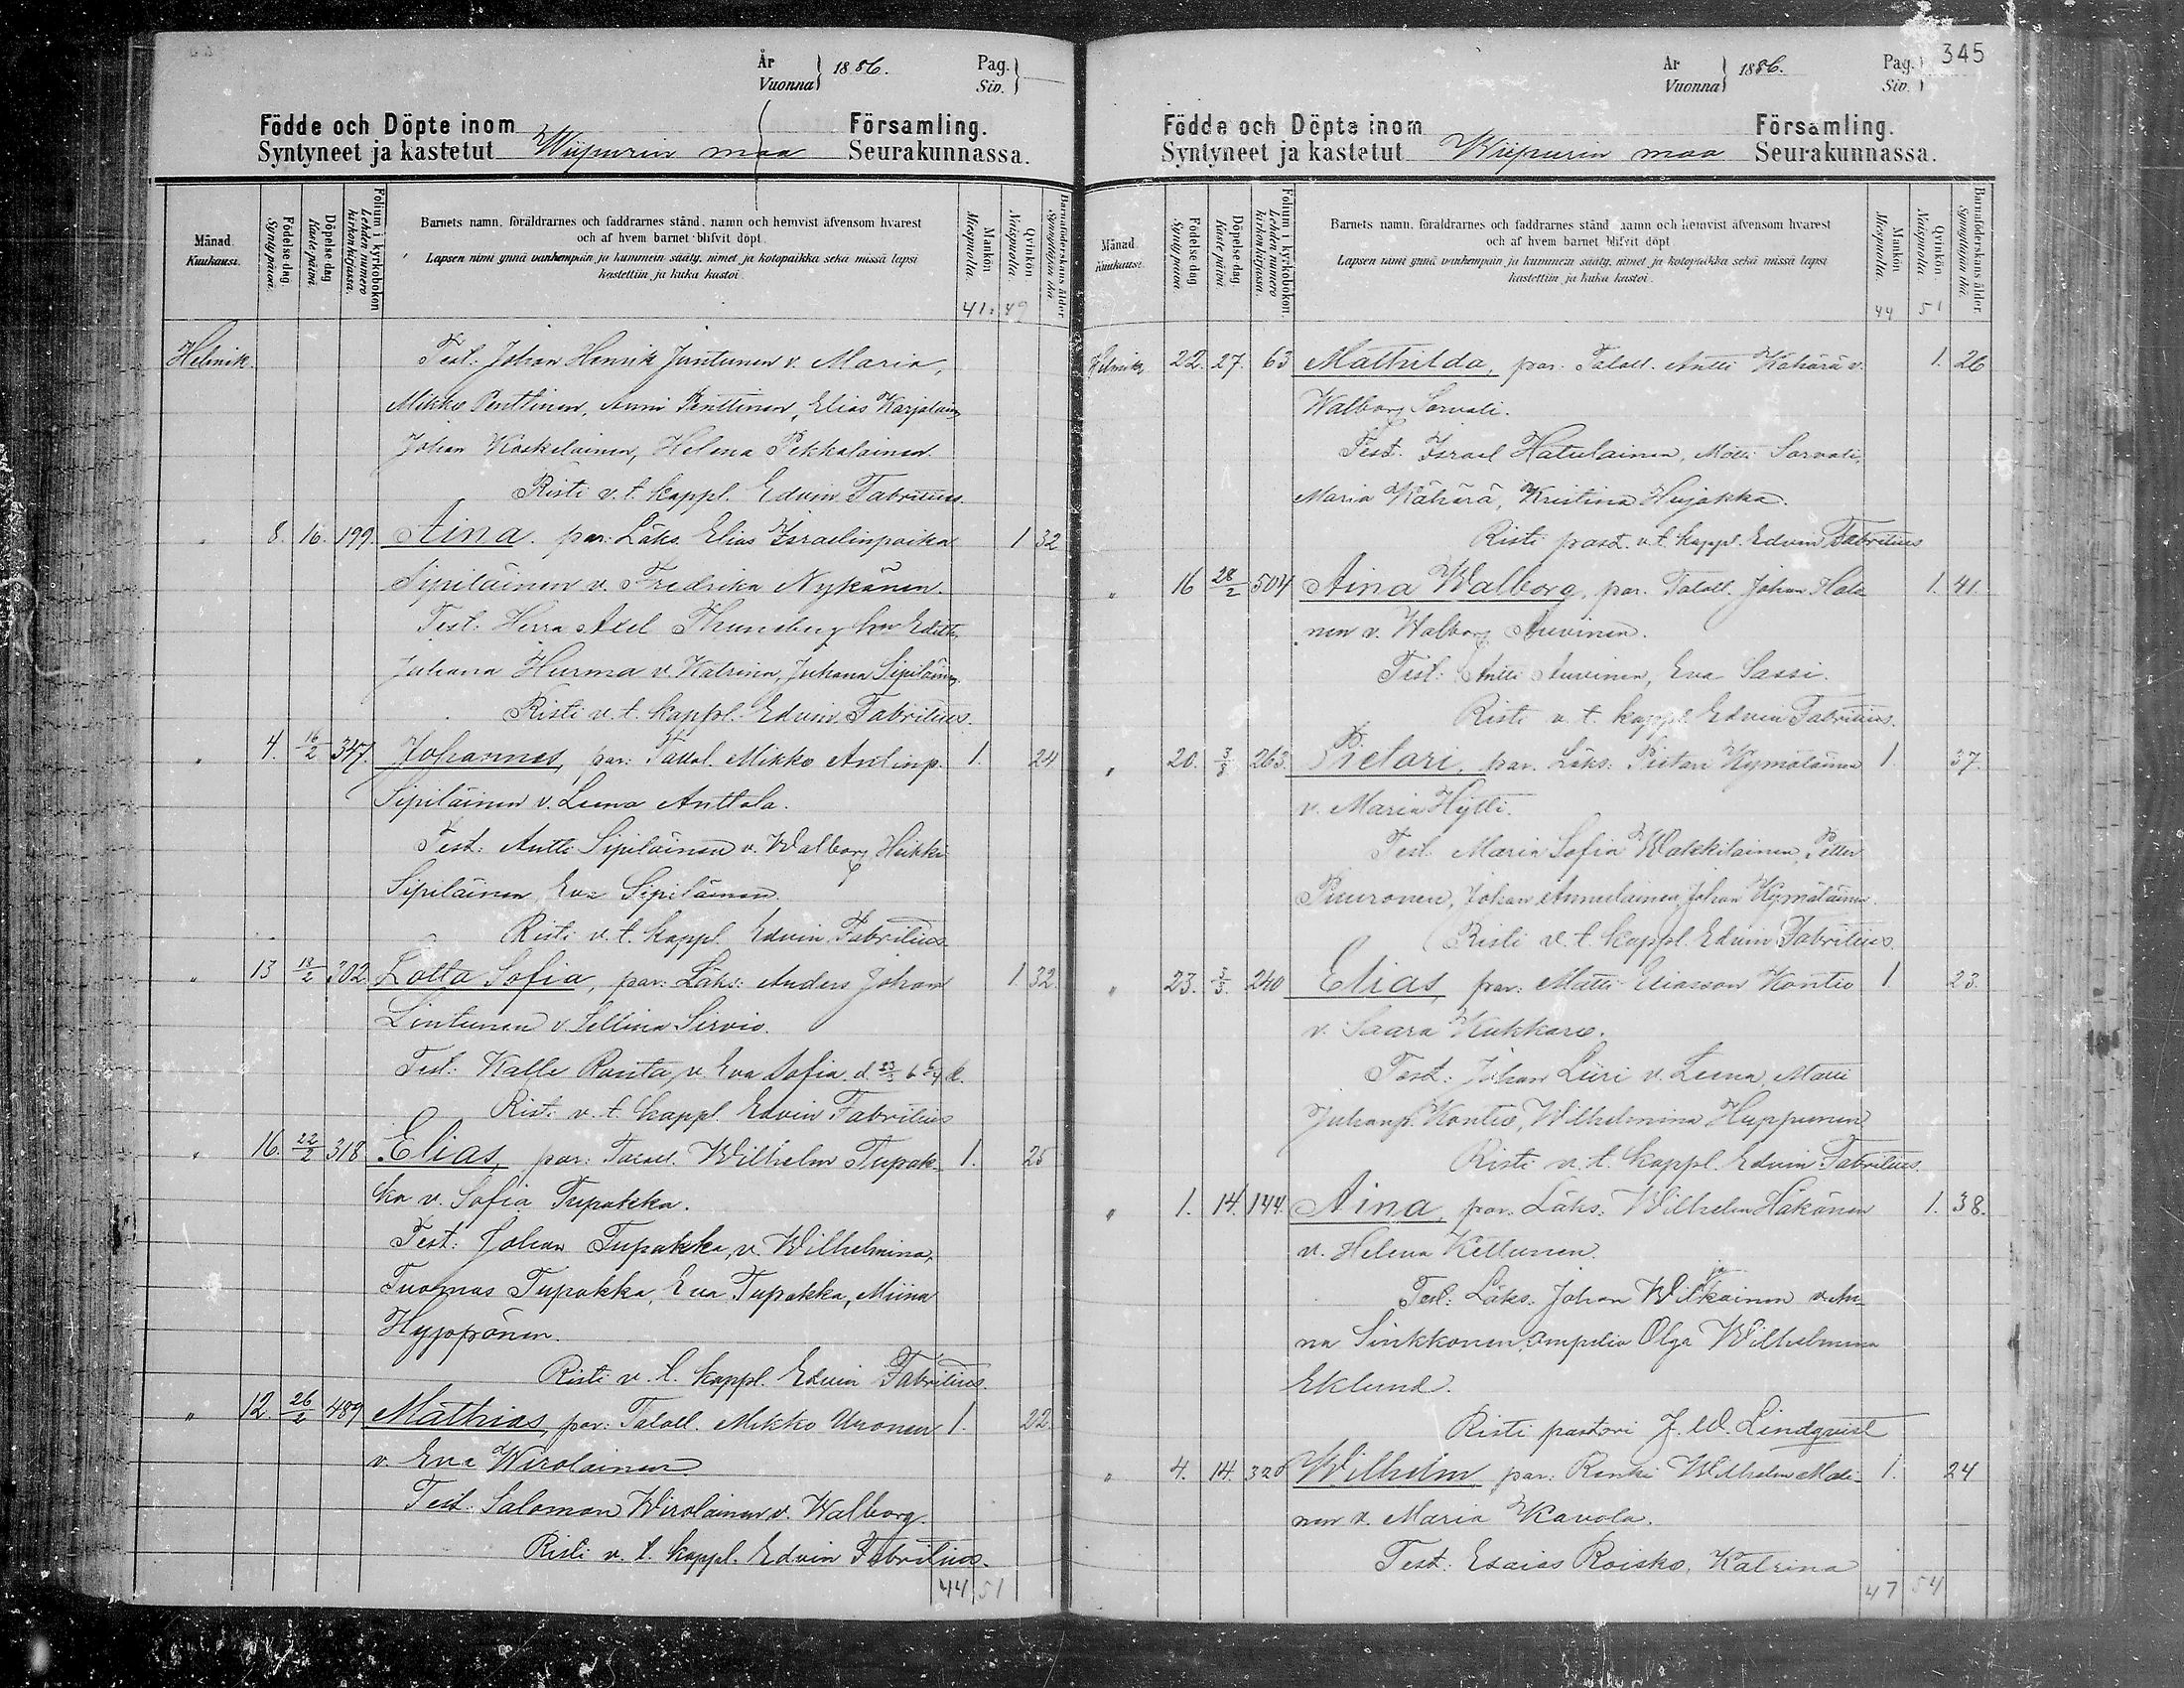 År
Vuonna } 1886.
Pag.
Siv. }
Födde och Döpte inom Församling.
Syntyneet ja kastetut Wiipurin maa Seurakunnassa.
Månad.
Kuukausi.
Födelse dag.
Syntypäivä.
Döpelse dag
Kastepäivä.
Folium i kyrkoboken
Lehden numero kirkonkirjassa.
Barnets namn, föräldrarnes och faddrarnes stånd, namn och hemvist äfvensom hvarest
och af hvem barnet blifvit döpt.
Lapsen nimi ynnä vanhempain ja kummein sääty, nimet ja kotopaikka sekä missä lapsi
kastettiin ja kuka kastoi.
Mankön
Miespuolta.
Qvinkön.
Naispuolta.
Barnaföderskans ålder
Synnyttäjän ikä.
41. 49
Helmik. Test. Johan Henrik Jantunen v. Maria,
Mikko Penttinen, Anni Penttinen, Elias Karjalain,
Johan Koskelainen, Helena Pekkalainen.
Risti v. t. kappl. Edvin Fabritius.
" 8. 16. 199. Aina. par: Läks. Elias Israelinpoika 1 32
Sipiläinen v. Fredrika Nykänen.
Test: Herra Axel Thuneberg Edith,
Juhana Hurma v. Katrina, Juhana Sipiläinen
Risti v. t. kappl. Edvin Fabritius.
" 4. 16/2 347. Johannes, par: Talol. Mikko Antinp. 1. 24
Sipiläinen v. Leena Anttola.
Test: Antti Sipiläinen v. Walborg Heikki
Sipiläinen, Eva Sipiläinen
Risti v. t. kappl. Edvin Fabritius
" 13 18/2 302. Lotta Sofia, par: Läks: Anders Johan 1 32.
Lintunen v. Sellina Sirvio.
Test: Kalle Ranta, v. Eva Sofia.
Risti v. t. kappl. Edvin Fabritius
" 16. 22/2 318 Elias, par: Talol. Wilhelm Tupak- 1. 25
ka v. Sofia Tupakka.
Test: Johan Tupakka, v. Wilhelmina,
Tuomas Tupakka, Eva Tupakka, Miina
Hyppönen.
Risti v. t. kappl. Edvin Fabritius.
" 12. 26/2 489 Mathias, par: Talol. Mikko Uronen 1. 22.
v. Eva Wirolainen
Test: Salomon Wirolainen v. Walborg.
Risti v. t. kappl. Edvin Fabritius.
44 51
345
År
Vuonna } 1886.
Pag.
Siv. }
Födde och Döpte inom Församling.
Syntyneet ja kastetut Wiipurin maa Seurakunnassa.
Månad.
Kuukausi.
Födelse dag
Syntypäivä.
Döpelse dag
Kastepäivä.
Folium i kyrkoboken.
Lehden numero kirkonkirjassa.
Barnets namn, föräldrarnes och faddrarnes stånd namn och hemvist äfvensom hvarest
och af hvem barnet blifvit döpt
Lapsen nimi ynnä vanhempain ja kummein sääty, nimet ja kotopaikka sekä missä lapsi
kastettiin ja kuka kastoi.
Mankön
Miespuolta.
Qvinkön.
Naispuolta.
Barnaföderskans ålder
Synnyttäjän ikä.
44 51
Helmik. 22. 27. 63 Mathilda, par. Taloll. Antti Kähärä v. 1. 26
Walborg Sorvali.
Test. Israel Hatulainen, Matti Sorvali,
Maria Kähärä, Kristina Hujakka.
Risti past. v. t. kappl. Edvin Fabritius
" 16 28/2 504 Aina Walborg, par. Taloll. Johan Hata- 1. 41.
nen v. Walborg Auvinen.
Test: Antti Auvinen, Eva Sassi.
Risti v. t. kappl. Edvin Fabritius.
" 20. 3/3 263. Pietari, par. Läks: Pietari Kymäläinen 1. 37.
v. Maria Hytti.
Test. Maria Sofia Wakkilainen, Petter
Puuronen, Johan Annulainen, Johan Kymäläinen.
Risti v. t. kappl. Edvin Fabritius
" 23. 3/3. 240 Elias, par: Matti Eliasson Kontio 1. 23.
v. Saara Kukkaro.
Test: Johan Liiri v. Leena, Matti
Juhanp. Kontio, Wilhelmina Huppunen
Risti v. t. kappl. Edvin Fabritius.
" 1. 14. 144. Aina, par. Läks: Wilhelm Häkänen 1. 38.
v. Helena Kettunen.
Test: Läks. Johan Wilkainen ja v. An-
na Sinkkonen, ompelia Olga Wilhelmina
Eklund.
Risti pastori J. W. Lindqvist
" 4. 14. 320 Wilhelm par: Renki Wilhelm Mali- 1. 24
nen v. Maria Kavola.
Test: Esaias Roisko, Katrina
47 54